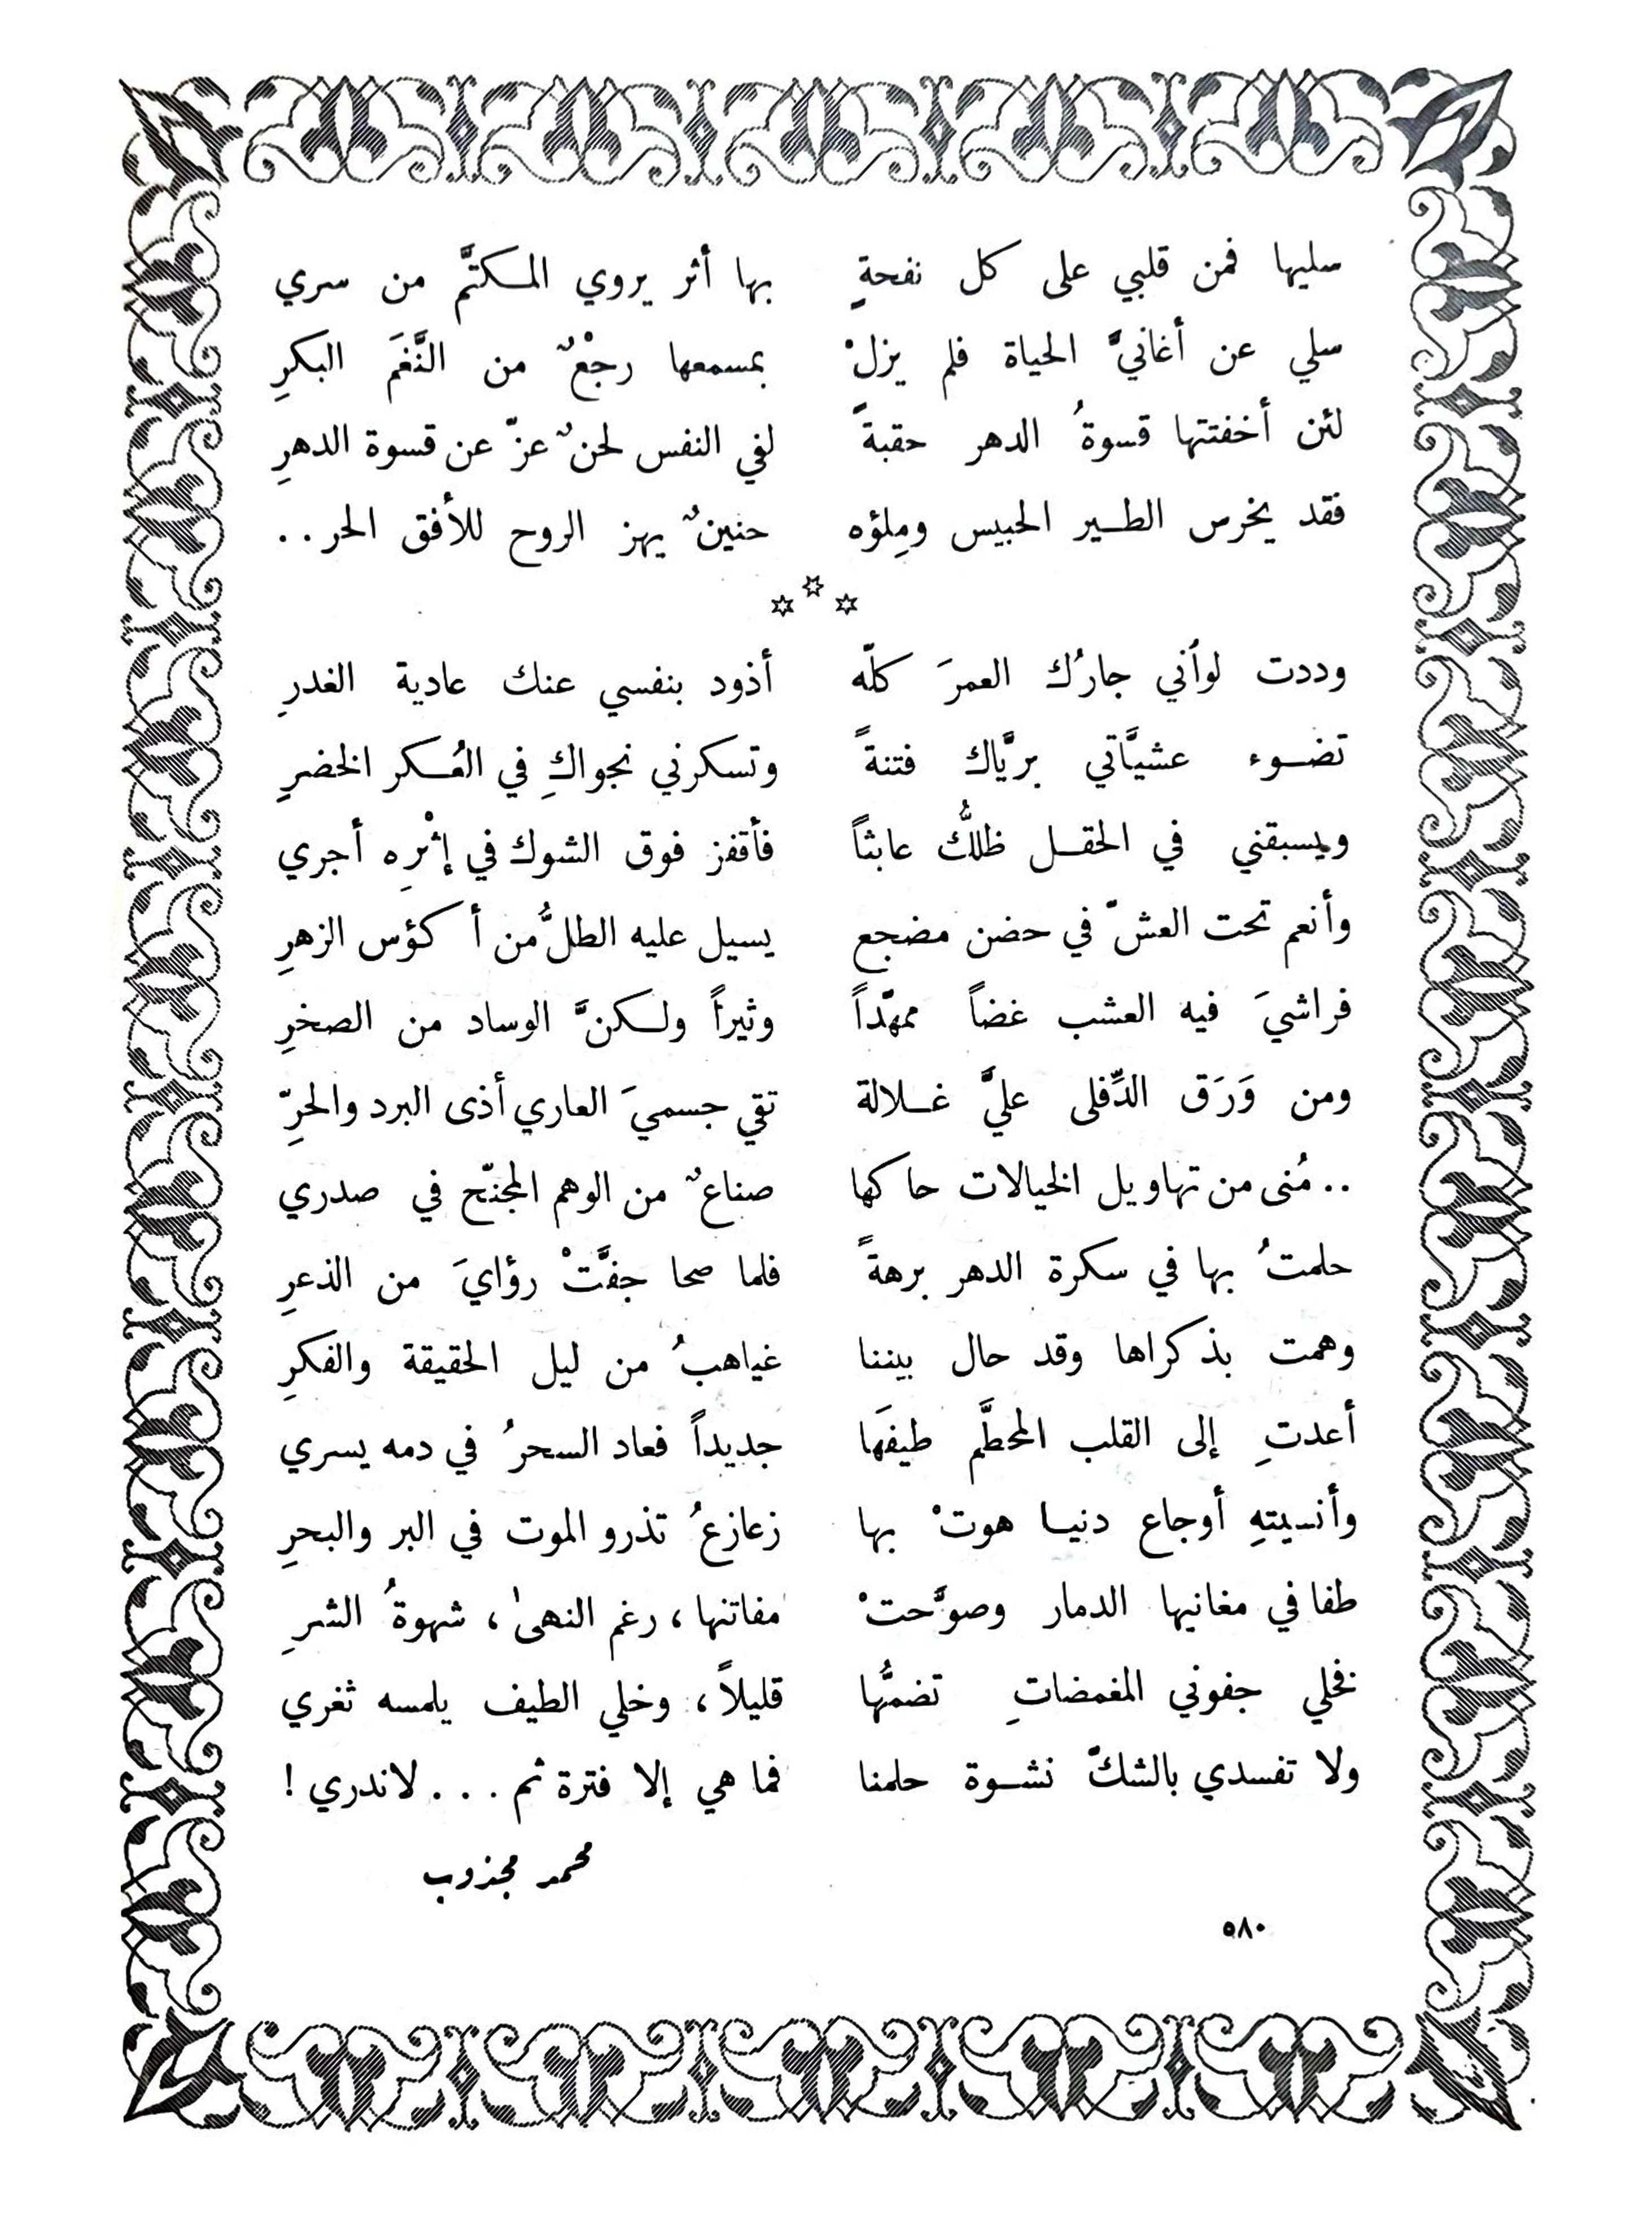 سليها فمن قلبي على كل نفحةٍ بها أثر يروي المكتَّم من سري
سلي عن أغانيَّ الحياة فلم يزلْ بمسمعها رجْعٌ من النَّغَم البكرِ
لئن أخفتتها قسوةُ الدهر حقبةً لفي النفس لحنٌ عزّ عن قسوة الدهرِ
فقد يخرس الطير الحبيس ومِلؤه حنينٌ يهز الروح للأفق الحر..
***
وددت لوأني جارُك العمرَ كلّه أذود بنفسي عنك عادية الغدرِ
تضوء عشيَّاتي بريَّاك فتنةً وتسكرني نجواكِ في العُكر الخضرِ
ويسبقني في الحقل ظلُّك عابثاً فأقفز فوق الشوك في إثْرِه أجري
وأنعم تحت العشّ في حضن مضجع يسيل عليه الطلُّ من أكؤس الزهرِ
فراشيَ فيه العشب غضاً ممهّداً وثيراً ولكنَّ الوساد من الصخرِ
ومن وَرَق الدِّفلى عليَّ غلالة تقي جسميَ العاري أذى البرد والحرِّ
.. مُنى من تهاويل الخيالات حاكها صناعٌ من الوهم المجنّح في صدري
حلمتُ بها في سكرة الدهر برهةً فلما صحا جفَّتْ رؤايَ من الذعرِ
وهمت بذكراها وقد حال بيننا غياهبُ من ليل الحقيقة والفكرِ
أعدتِ إلى القلب المحطَّم طيفَها جديداً فعاد السحرُ في دمه يسري
وأنسيتهِ أوجاع دنيا هوتْ بها زعازعُ تذرو الموت في البر والبحرِ
طفا في مغانيها الدمار وصوَّحتْ مفاتنها، رغم النهىٰ، شهوةُ الشرِ
فخلي جفوني المغمضاتِ تضمُّها قليلاً، وخلي الطيف يلمسه ثغري
ولا تفسدي بالشكّ نشوة حلمنا فما هي إلا فترة ثم ... لاندري!
محمد مجذوب
٥٨٠